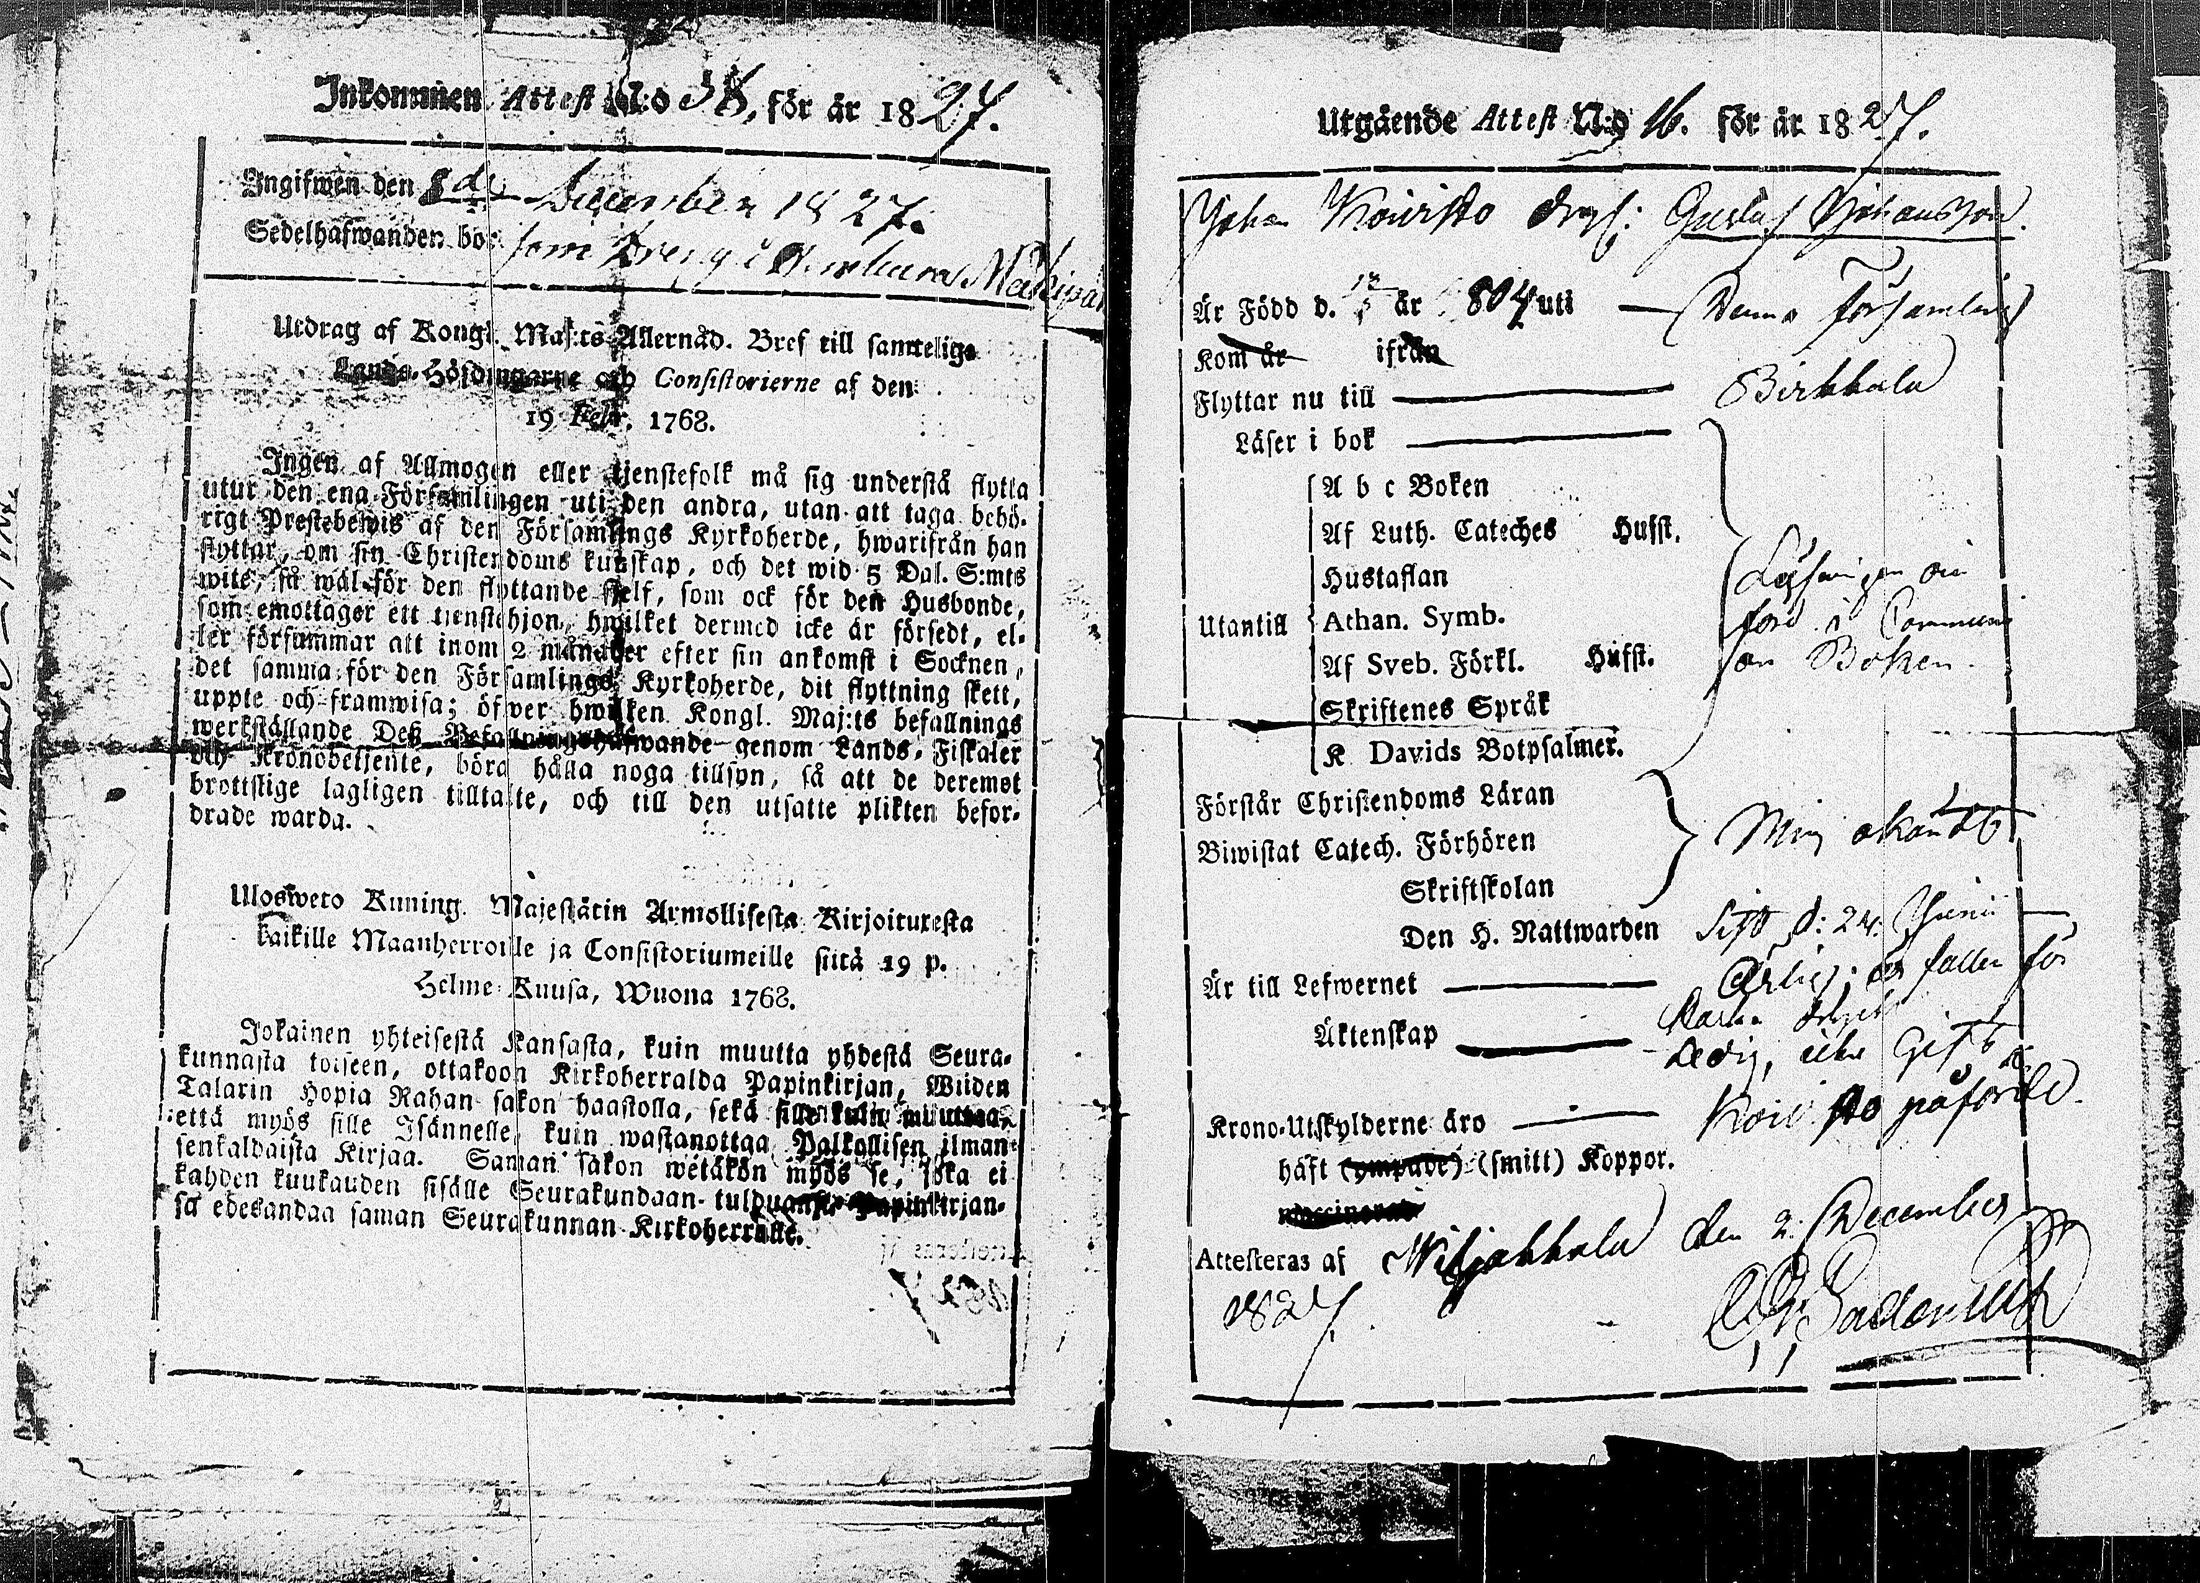 Inkommen Attest N:o 38, för år 1827.
Ingifwen den 8de December 1827.
Sedelhafwanden bor som Dreng i
Utdrag af Kongl. Maj:ts Allernåd. Bref till samtelige
Lands-Höfdingarne och Consistorierne af den
19 Febr. 1768.
Ingen af Allmogen eller tjenstefolk må sig understå flytta
utur den ena Församlingen uti den andra, utan att taga behö-
rigt Prestebewis af den Församlings Kyrkoherde, hwarifrån han
flyttar, om sin Christendoms kunskap, och det wid 5 Dal. S:mts
wite, så wäl för den flyttande sjelf, som ock för den Husbonde,
som emottager ett tjenstehjon, hwilket dermed icke är försedt, el-
ler försummar att inom 2 månader efter sin ankomst i Socknen,
det samma för den Församlings Kyrkoherde, dit flyttning skett,
uppte och framwisa; öfwer hwilken Kongl. Maj:ts befallnings
werkställande Deß Befallningshafwande genom Lands-Fiskaler
och Kronobetjente, böra hålla noga tillsyn, så att de deremot
brottslige lagligen tilltalte, och till den utsatte plikten befor-
drade warda.
Ulosweto Kuning. Majestätin Armollisesta Kirjoituresta
kaikille Maanherroille ja Consistoriumeille siitä 19 p.
Helme-Kuusa, Wuona 1768.
Jokainen yhteisestä Kansasta, kuin muutta yhdestä Seura-
kunnasta toiseen, ottakoon Kirkoherralda Papinkirjan, Wiiden
Talarin Hopia Rahan sakon haastolla, sekä sille kuin muuttaa,
että myös sille Isännelle, kuin wastanottaa Palkollisen ilman
senkaldaista Kirjaa. Saman sakon wetäkön myös se, joka ei
kahden kuukauden sisälle Seurakundaan tulduansa Papinkirjan-
sa edesandaa saman Seurakunnan Kirkoherralle.
Utgående Attest N:o 16. för år 1827.
Johan Koivisto drgs: Gustaf Johansson.
Är Född d. år 1804 uti — Denna Församling
Kom år ifrån
Flyttar nu till — Birkkala
Läser i bok
A b c Boken
Af Luth. Cateches Hufst.
Hustaflan
Utantill Athan. Symb.
Af Sveb. Förkl. Hufst.
Skriftenes Språk
K Davids Botpsalmer.
Läsningen
förd i Communi
on Boken.
Förstår Christendoms Läran
Biwistat Catech. Förhören
Skriftskolan
Den H. Nattwarden Sist d: 24. Junii
Är till Lefwernet — Ärlig; för
Äktenskap — Ledig, icke Gift
Krono-Utskylderne äro — Koivisto påförde.
haft (ympade) (smitt) Koppor.
vaccinerad
Attesteras af Wiljakkala den 2. December
1827.